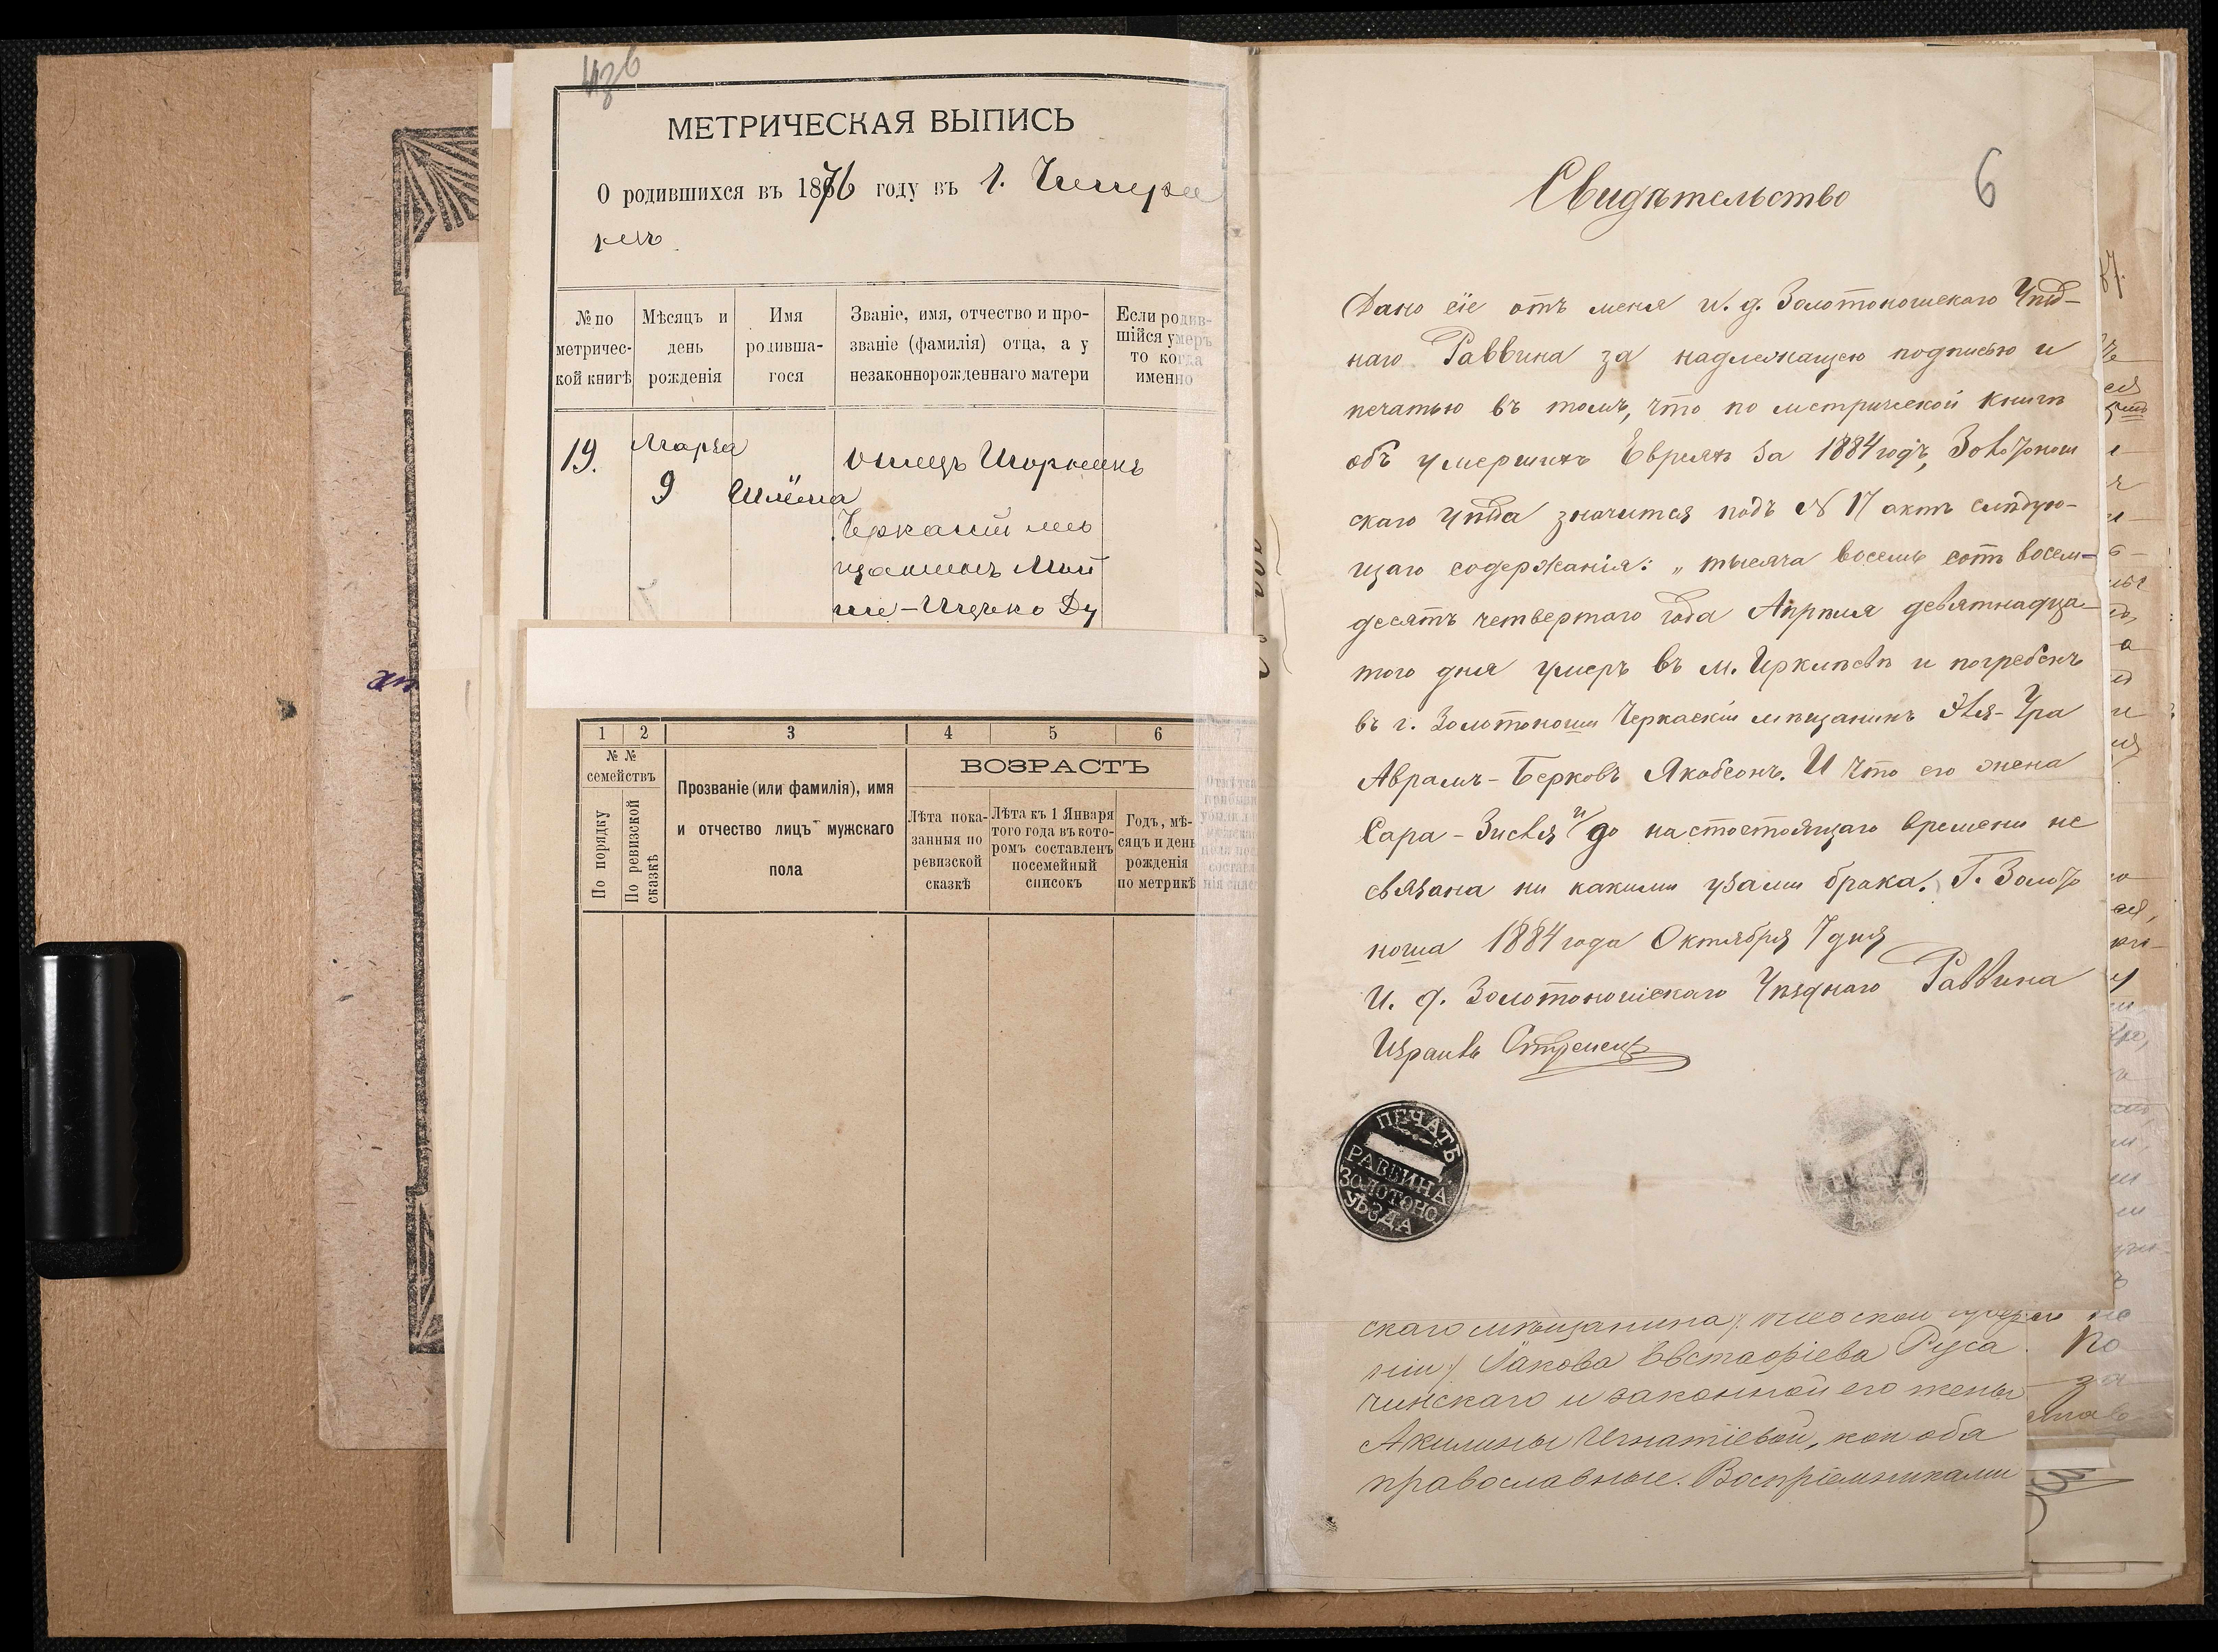 МЕТРИЧЕСКАЯ ВЫПИСЬ
О родившихся въ 1876 году въ г.
№ по метричес-кой книгѣ
Мѣсяцъ и день рожденія
Имя родивша-гося
Званіе, имя, отчество и про-званіе (фамилія) отца, а у незаконнорожденнаго матери
Если родив-шійся умеръ то когда именно
19.
Марта
9
Шлёма
отецъ
Черкаскій мѣ
щанинъ Мой
ше-Ицько Ду
1 2 3 4 5 6
№ №
семействъ
По порядку
По ревизской сказкѣ
Прозваніе (или фамилія), имя
и отчество лицъ мужскаго
пола
ВОЗРАСТЪ
Лѣта пока-занныя по ревизской сказкѣ
Лѣта къ 1 Января того года въ кото-ромъ составленъ посемейный списокъ
Годъ, мѣ-сяцъ и день рожденія по метрикѣ
6
Свидѣтельство
Дано сіе отъ меня и. д. Золотоношскаго Уѣзд-
наго Раввина за надлежащею подписью и
печатью въ томъ, что по метрической книгѣ
объ умершихъ Евреяхъ за 1884 годъ, Золотонош
скаго уѣзда значится подъ № 17 актъ слѣдую-
щаго содержанія: „ тысяча восемь сотъ восем-
десятъ четвертаго года Апрѣля девятнадца-
того дня умеръ въ м. Ирклѣевѣ и погребенъ
въ г. Золотоноши Черкаскій мѣщанинъ
Аврамъ-Берковъ Якобсонъ. И что его жена
Сара-Зисля и до настостоящаго времени не
связана ни какими узами брака. Г. Золото
ноша 1884 года Октября 7 дня
И. д. Золотоношскаго Уѣзднаго Раввина
Израиль Стрелецъ
ПЕЧАТЬ
РАВВИНА
ЗОЛОТОНО.
УѢЗДА
скаго мѣщанина
ніи) Іакова Евстафіева Руса
чинскаго и законной его жены
Акилины Игнатіевой, кои оба
православные. Воспріемниками